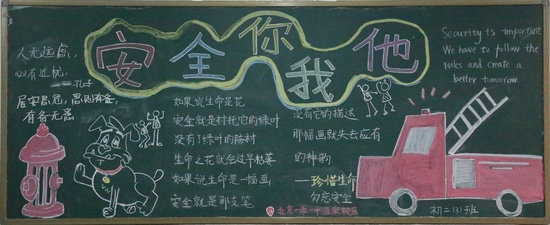 安全你我他
人无远虑，
必有近忧。
——孔子
居安思危，思则有备，
有备无患
如果说生命是花
安全就是衬托它的绿叶
没有了绿叶的陪衬
生命之花就会过早枯萎
如果说生命是一幅画
安全就是那支笔
没有它的描述
那幅画就失去应有
的神韵
——珍惜生命
勿忘安全
Security is important
We have to follow the
rules and create a
better tomorrow.
初二(3)班